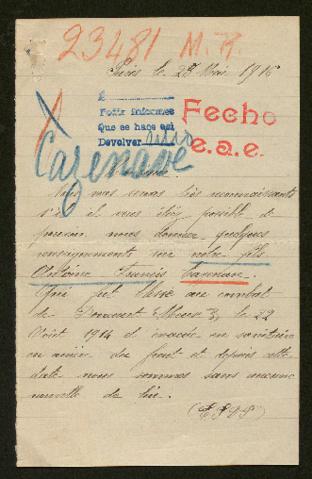 23481 M.R.
Paris le 27 Mai 1916
A
Pedir informes
Que se hace así
Devolver
Fecho
e.a.e.
Cazenave
Nous vous serions très reconnaissants
s'il vous était possible de
pouvoir nous donner quelques
renseignements sur notre fils
Antoine Francis Cazenave.
Qui fut blessé au combat
de Meuse, le 22
Août 1914 et évacué en sanitaire
en arrière du front et depuis cette
date nous sommes sans aucune
nouvelle de lui.
(T.S.V.P)